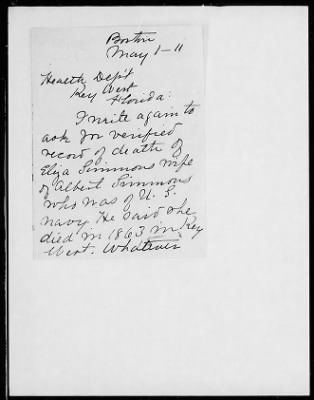 Boston
May 1-11
Health Dep't
Key West
Florida:
I write again to
ask for verified
record of death of
Eliza Simmons wife
of Albert Simmons
who was of U. S.
Navy. He said she
died in 1863 in Key
West. Whatever